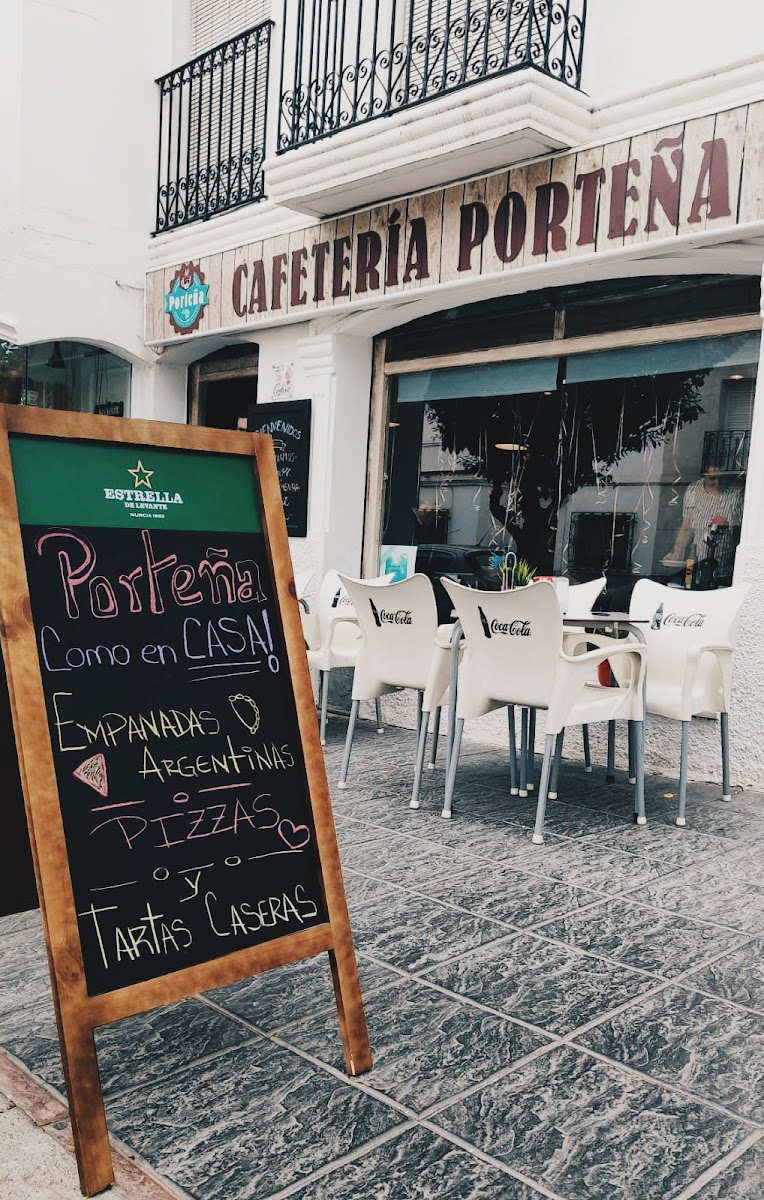 CAFETERÍA PORTEÑA
Porteña
BIENVENIDOS
ESTRELLA
DE LEVANTE
MURCIA 1963
Porteña
Como en CASA!
EMPANADAS
ARGENTINAS
PIZZAS
y
TARTAS CASERAS
Coca-Cola
Coca-Cola
Coca-Cola